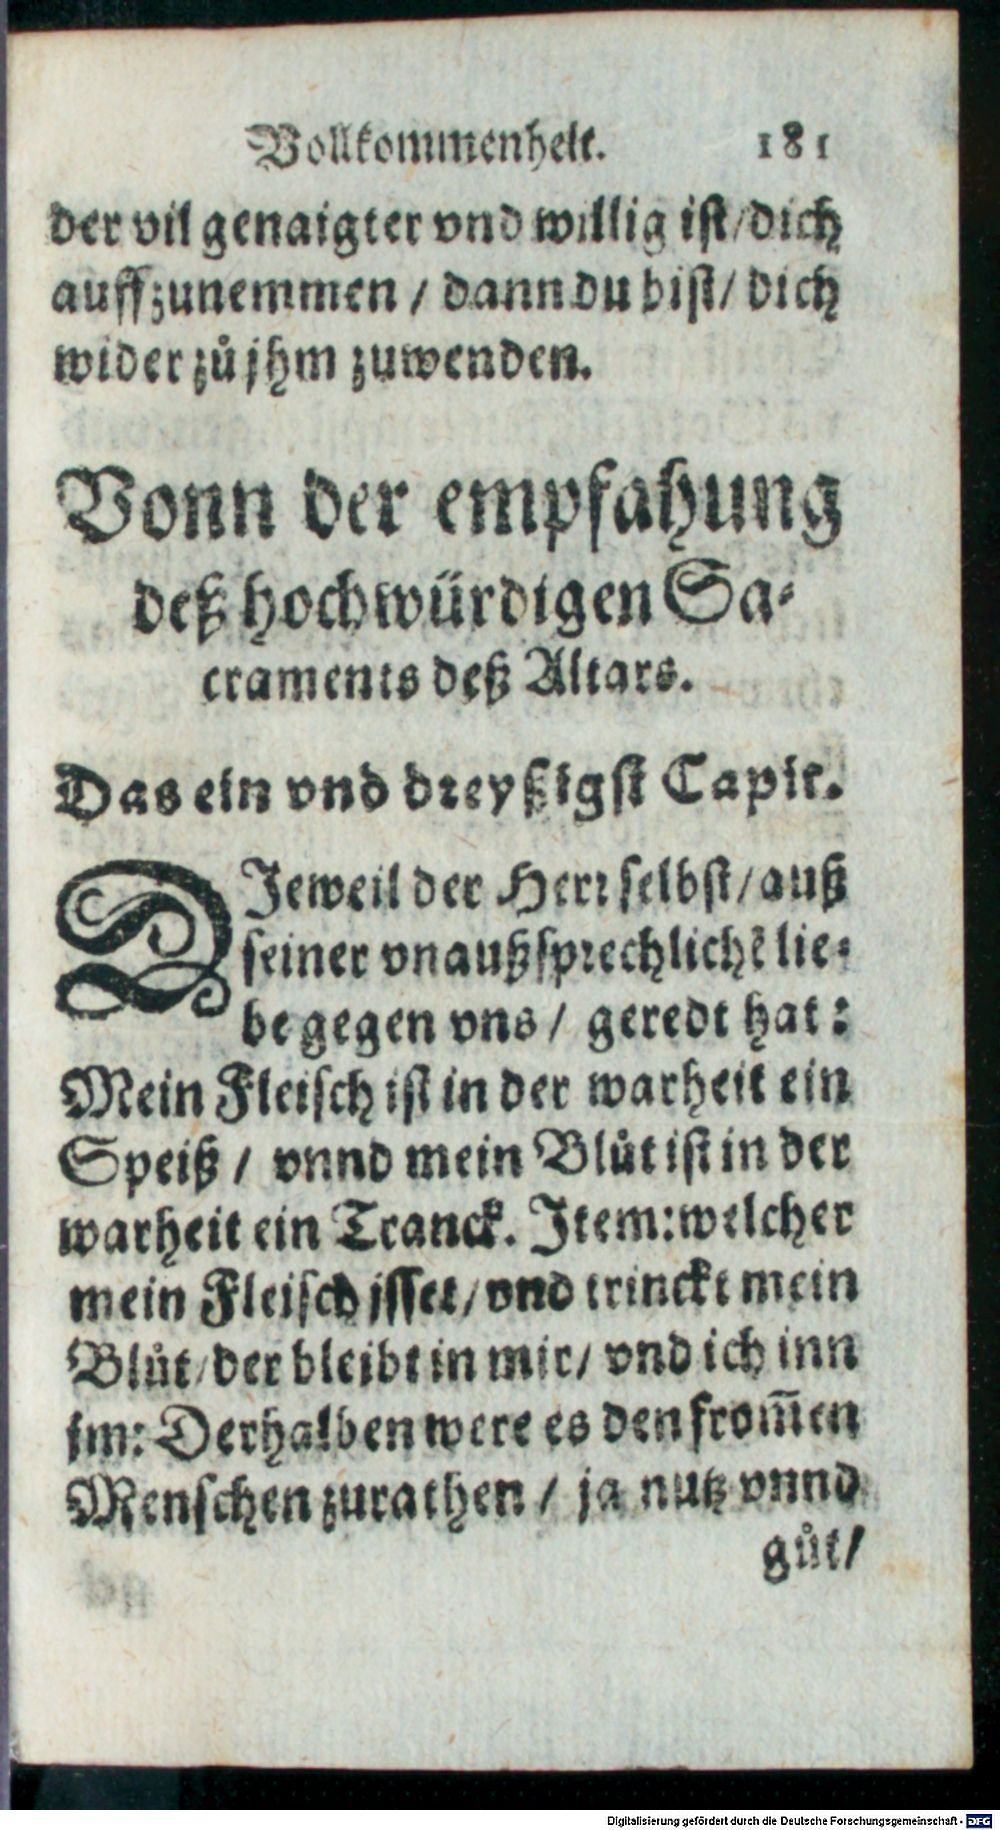 Vollkommenheit. 181
der vil genaigter vnd willig ist/dich
auffzunemmen / dann du bist/ dich
wider zů jhm zuwenden.
Vonn der empfahung
deß hochwürdigen Sa-
craments deß Altars.
Das ein vnd dreyßigst Capit.
DJeweil der Herr selbst/auß
seiner vnaußsprechlichẽ lie-
be gegen vns / geredt hat:
Mein Fleisch ist in der warheit ein
Speiß / vnnd mein Blůt ist in der
warheit ein Tranck. Jtem:welcher
mein Fleisch jsset/vnd trinckt mein
Blůt/der bleibt in mir/ vnd ich inn
jm: Derhalben were es den from̃en
Menschen zurathen / ja nutz vnnd
gůt/
Digitalisierung gefördert durch die Deutsche Forschungsgemeinschaft - DFG